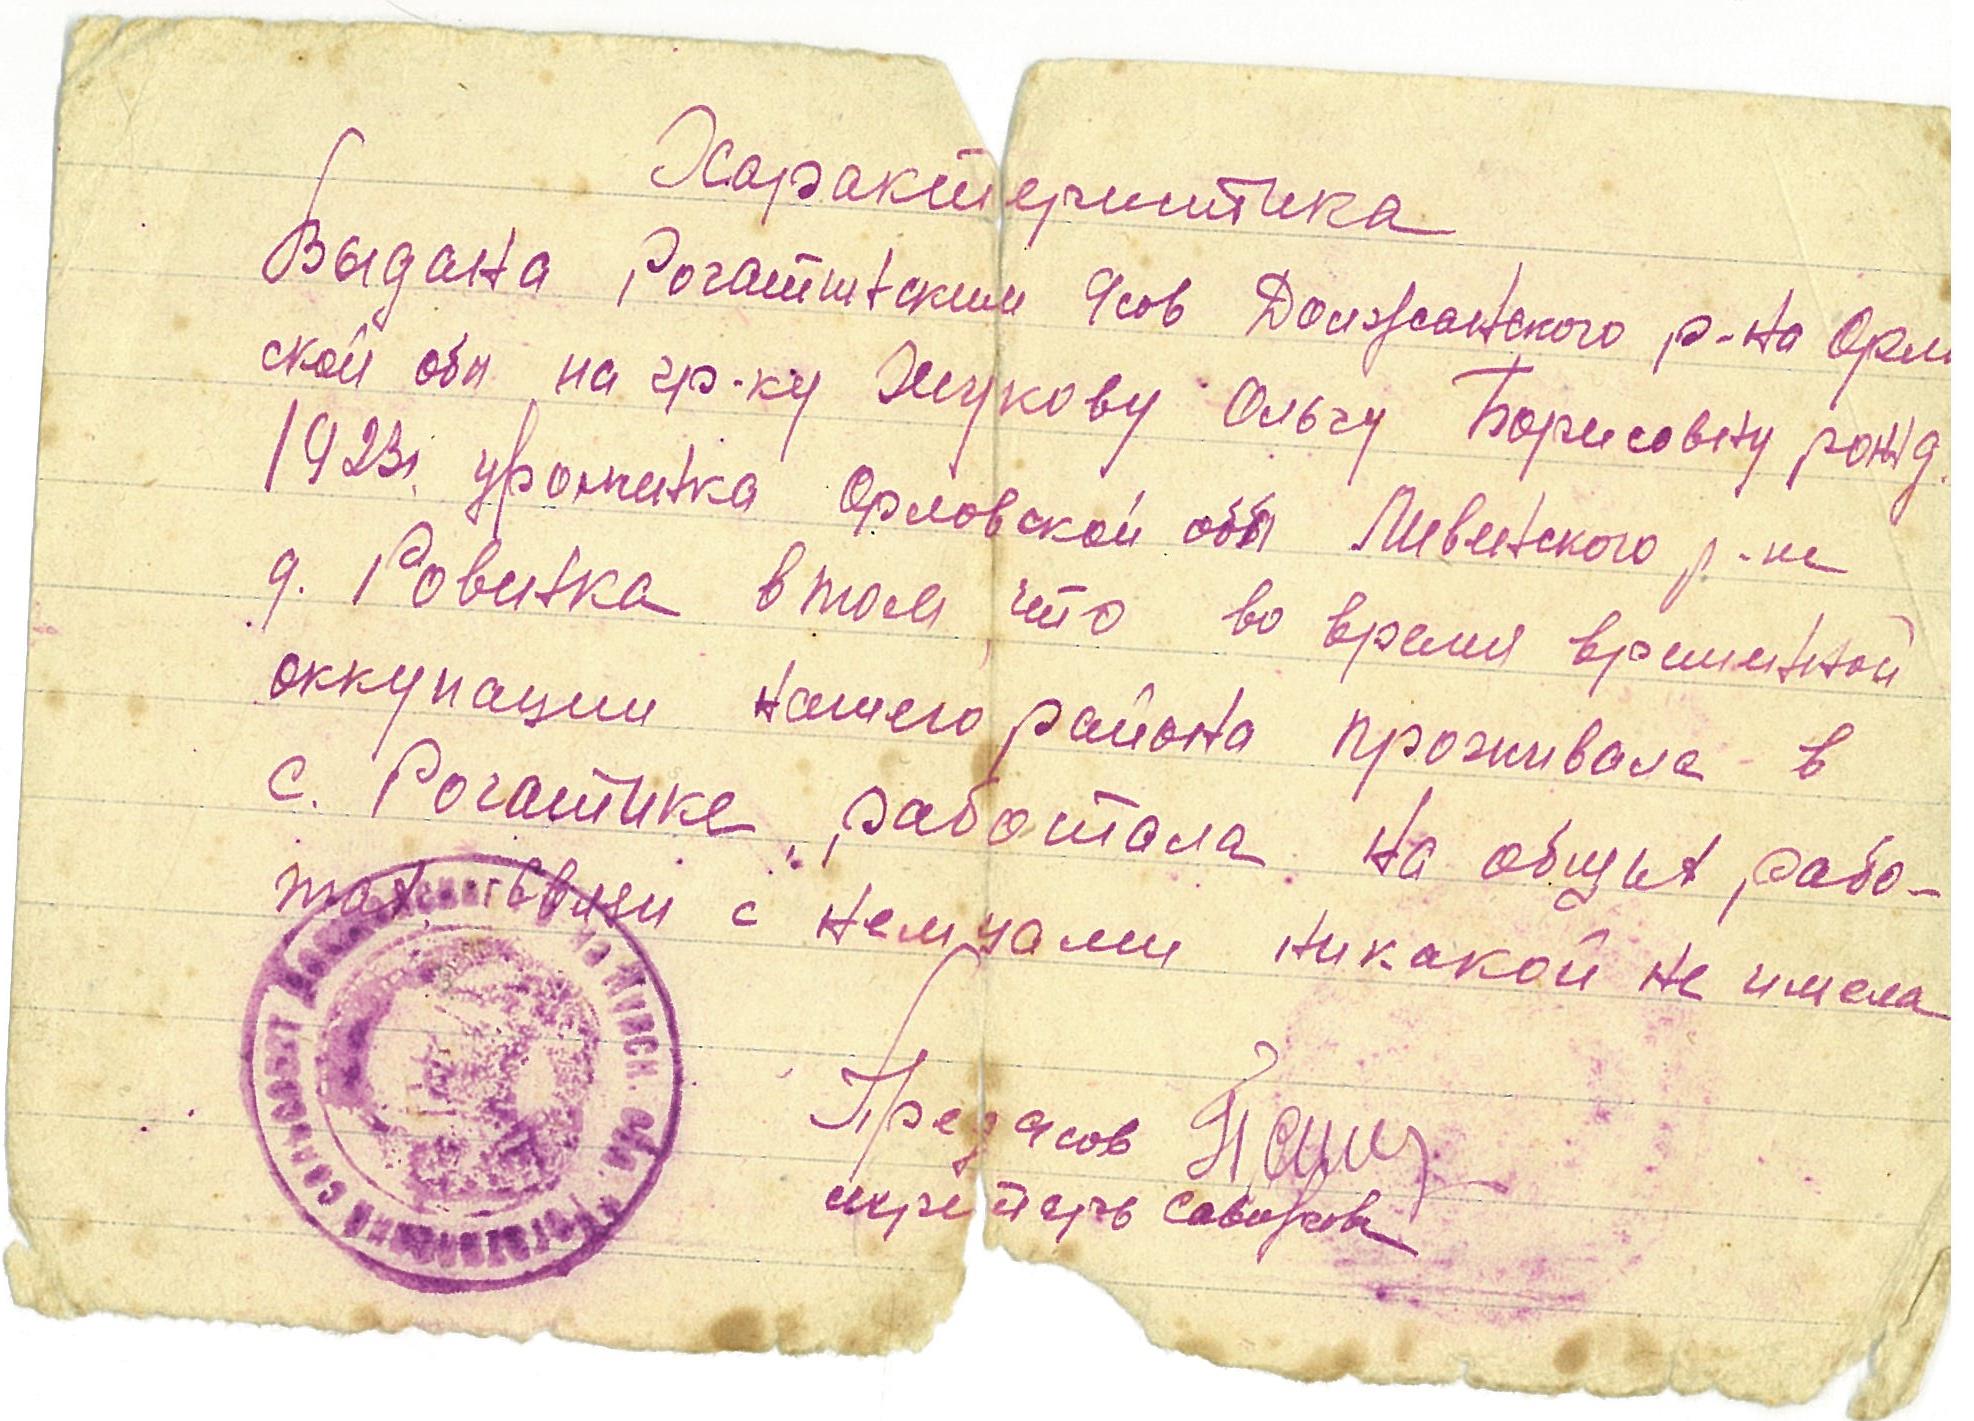 Характеристика
Выдана Рогатинским с/сов Должанского р-на Орлов
ской обл на гр-ку Жукову Ольгу Борисовну рожд.
1923г. уроженка Орловской обл Ливенского р-на
д. Ровенка в том что во время временной
оккупации нашего района проживала в
с. Рогатике, работала на общих рабо-
тах связи с немцами никакой не имела
Пред с/сов
секретарь
Должанского р-на Курск. обл.
сельсовет